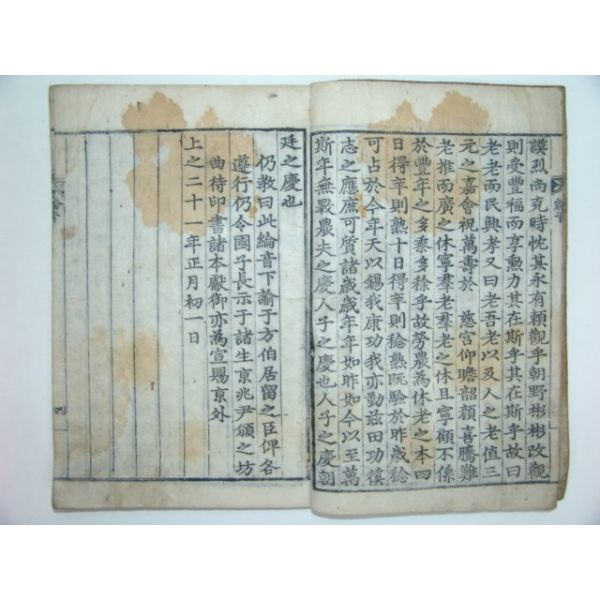 謨烈尚克時忱其永有賴觀乎朝野彬彬改觀
則受豐福而享勲力其在斯乎其在斯乎故曰
老老而民興孝又曰老吾老以及人之老值三
元之嘉會祝萬壽於 慈宮仰瞻韶顏喜騰難
老推而廣之休寧羣老羣老之休且寧顧不係
於豐年之多黍多稌乎故勞農為休老之本四
日得辛則熟十日得辛則稔熟阮驗於昨歲稔
可占於今年天以錫我康功我亦勤茲田功徯
志之應庶可質諸歲歲年年如昨如今以至萬
斯年無斁農夫之慶人子之慶也人子之慶朝
廷之慶也
仍教曰此綸音下諭于方伯居留之臣俾各
遵行仍令國子長示于諸生京兆尹頒之坊
曲待印書諸本獻御亦為宣賜京外
上之二十一年正月初一日
四